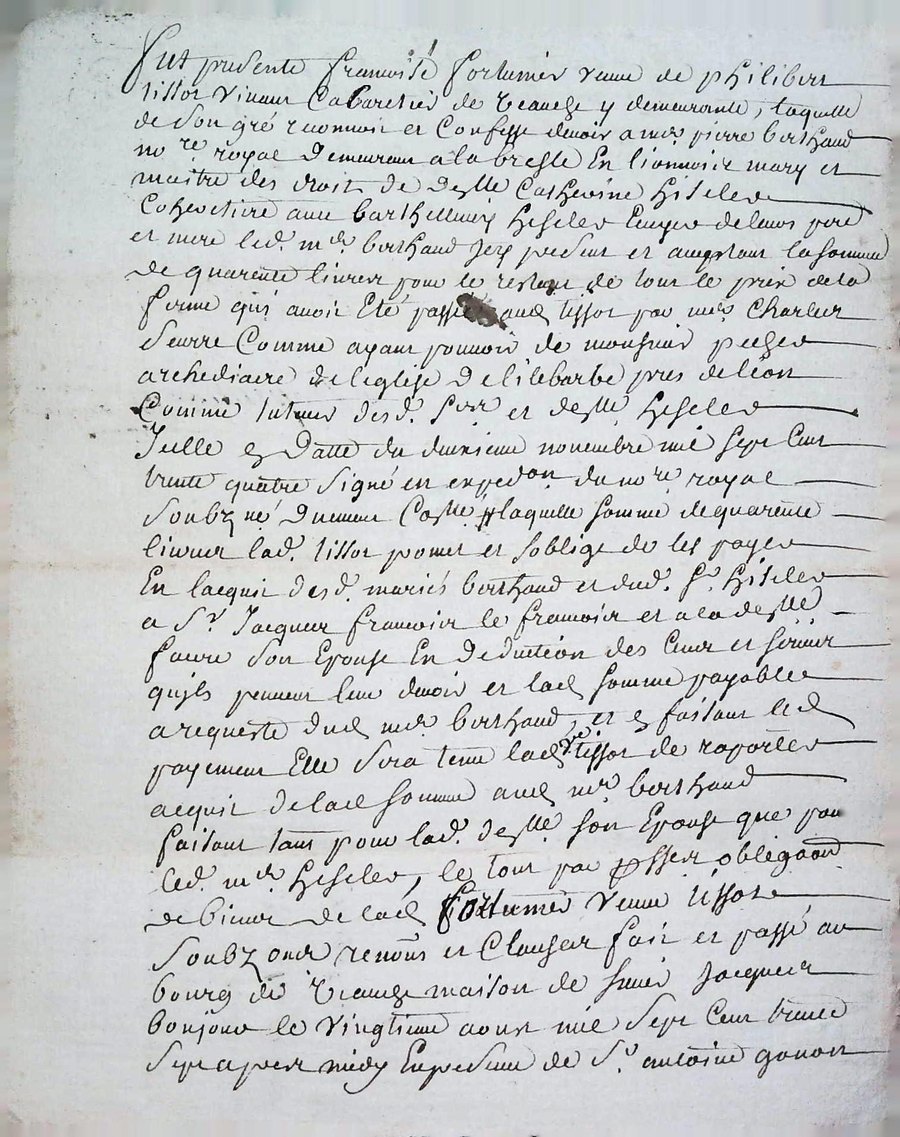 fut presente francoise fortunier veuve de philibert
tissot vivant Cabaretier de y demeurante, laquelle
de son gré reconnoit et Confesse devoir a mre pierre berthaud
nore royal demeurant a la bresle En lionnois mary et
maitre des droits de delle Catherine hiseler
Cohéritiere avec barthellemy hiseler de leurs pere
et mere led. mre berthaud icy present et acceptant la somme
de quarente livres pour le restant de tout le prix de la
ferme qui avoit Eté passé aud tissot par mre Charles
seurre Comme ayant pouvoir de monsieur
archediacre de leglise de lilebarbe pres de lion
Comme tuteur desd. Sr et delle hiseler
Icelle en datte du deuxieme novembre mil sept Cent
trente quatre signé en expedon du nore royal
soubzné laquelle somme de quarente
livres lad. tissot promet et soblige de les payer
En lacquit desd. mariés berthaud et dud. Sr. hiseler
a Sr. Jacques francois le francois et a la delle
favre son Epouse En deduction des Cens et servis
quils peuvent leur devoir et lad somme payable
a requeste dud mre berthaud, et en faisant led
payement Elle sera tenue lad ve tissot de raporter
acquit de lad somme aud mre berthaud
faisant tant pour lad. delle son Epouse que pour
led. mre hiseler, le tout par obligaon
de biens de lad fortunier veuve tissot
soubz renons et Clauses fait et passé au
bourg de maison de sieur Jacques
bonjour le vingtieme aoust mil sept Cent trente
sept apres midy En presence de Sr. antoine gonon